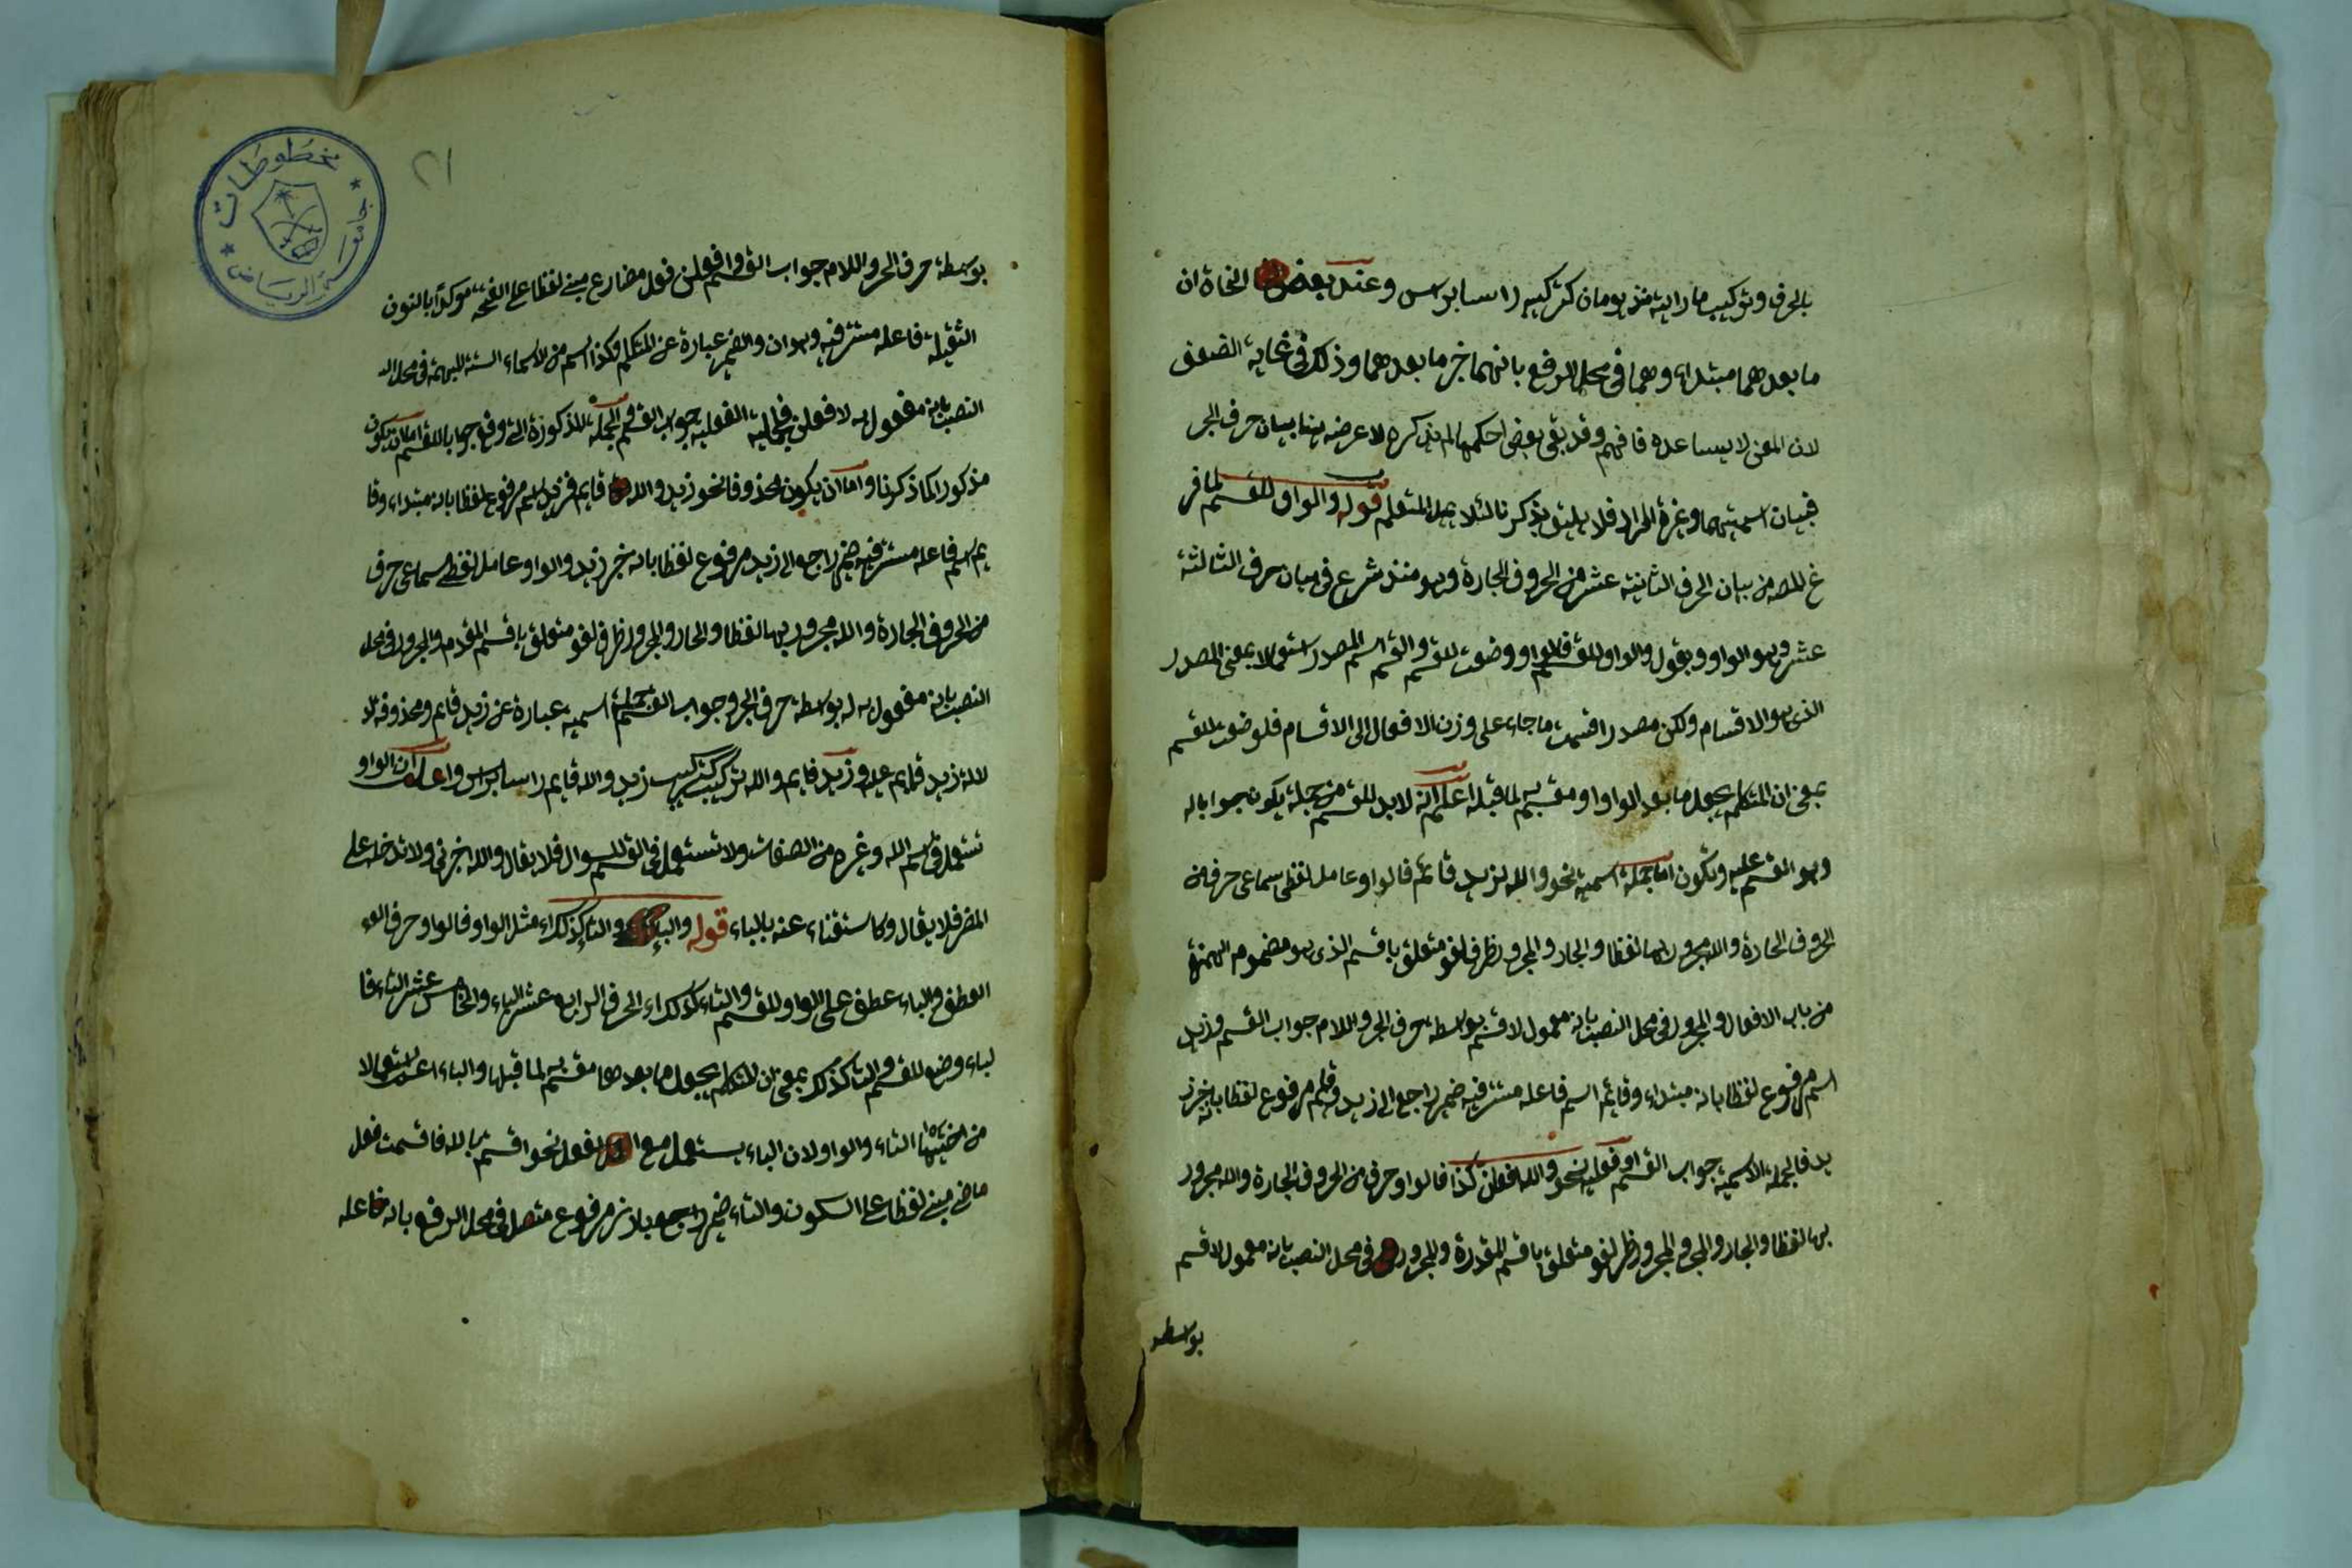 بالحرف وتركيب ما رايته منذ يومان كتركيب راسا براس وعند بعض النحاة ان
ما بعدهما مبتداء وهما في محل الرفع بانهما خبر ما بعدهما وذلك في غاية الضعف
لان المعنى لا يساعده فافهم وقد بقى بعض احكمهما لم يذكره لا عرضه بيان حرف الجر
فبيان اسميتهما وغرة المراد فلا يليق بذكرنا لئلا يمل المتعلم قوله والواو للقسم لما فر
غ المصه من بيان الحرف الثانية عشر من الحروف الجارة وهو منذ شرع في بيان حرف الثالثة
عشر وهو الواو ويقول والواو للقسم فالواو وضعت للقسم والقسم اسم المصدر استعمالا بمعنى المصدر
الذى هو الاقسام ولكن مصدر اقسمت ما جاء على وزن الافعال الى الاقسام فلو ضعت للقسم
بمعنى ان المتكلم يجعل ما بعد الواو او مقسم به لما قبله اعلم انه لا بد للقسم من جملة يكون جوابا له
وهو المقسم عليه وتكون اما جملة اسمية نحو والله لزيد قائم فالواو عامل لفظى سماعى حرف من
الحروف الجارة والله مجرور بها لفظا والجار والمجرور ظرف لغو متعلق باقسم الذى هو مضموم الهمزة
من باب الافعال والمجرور في محل النصب بانه معمول لاقسم بوسطة حرف الجر واللام جواب القسم وزيد
اسم مرفوع لفظا بانه مبتداء وقائم اسم فاعله مستتر فيه ضمير راجع الى زيد وقائم مرفوع لفظا بانه خبر ز
يد فالجملة الاسمية جواب القسم او فعلية نحو والله افعلن كذا فالواو حرف من الحروف الجارة والله مجرور
بها لفظا والجار والمجر والمجرور ظرف لغو متعلق باقسم المقدرة والمجرور في محل النصب بانه معمول لاقسم
بوسطة
٢١
بوسطة حرف الجر واللام جواب القسم وافعلن فعل مضارع مبنى لفظا على الفتحة موكدا بالنون
الثقيلة فاعله مستتر فيه وهو ان والضمير عبارة عن المتكلم وكذا اسم من الاسماء الستة المبهمة في محل الـ
النصب بانه مفعول به لافعلن فجملة الفعلية جواب القسم والجملة المذكورة التى وقع جوابا للقسم اما ان تكون
مذكورا كما ذكرنا واما ان يكون محذوفا نحو زيد والله قايم فزيد اسم مرفوع لفظا بانه مبتداء وقا
يم اسم فاعله مستتر فيه ضمير راجع الى زيد مرفوع لفظا بانه خبر زيد والواو عامل لفظى سماعى حرف
من الحروف الجارة والله مجرور بها لفظا والجار والمجرور ظرف لغو متعلق باقسم المقدم والمجرور في محل
النصب بانه مفعول به له بوسطة حرف الجر وجواب القسم جملة اسمية عبارة عن زيد قايم ومحذوفة
لالة زيد قايم عليه وزيد قايم والله تركيب كتركيب زيد والله قايم راسا براس واعلم ان الواو
تستعمل في اسم الله وغيره من الصفات ولا تستعمل في القسم السوال فلا يقال والله اخبرنى ولا تدخل على
المضمر فلا يقال وكا ستغناء عنه بالباء قوله والباء والتا كذلك مثل الواو فالواو حرف الـ
العطف والباء عطف على الواو وللقسم والتاء كذلك الحرف الرابع عشر الباء والخامس عشر التاء فا
لباء وضع للقسم والتا كذلك بمعنى ان المتكلم يجعل ما بعدهما مقسم به لما قبلها والباء اعم استعمالا
من اختيها التاء والواو لان الباء يستعمل مع الفعل نحو اقسمت بالله فاقسمت فعل
ماضى مبنى لفظا على السكون والتاء ضمير راجع بارز مرفوع متصل في محل الرفع بانه فاعله
مخطوطات
جامعة الرياض